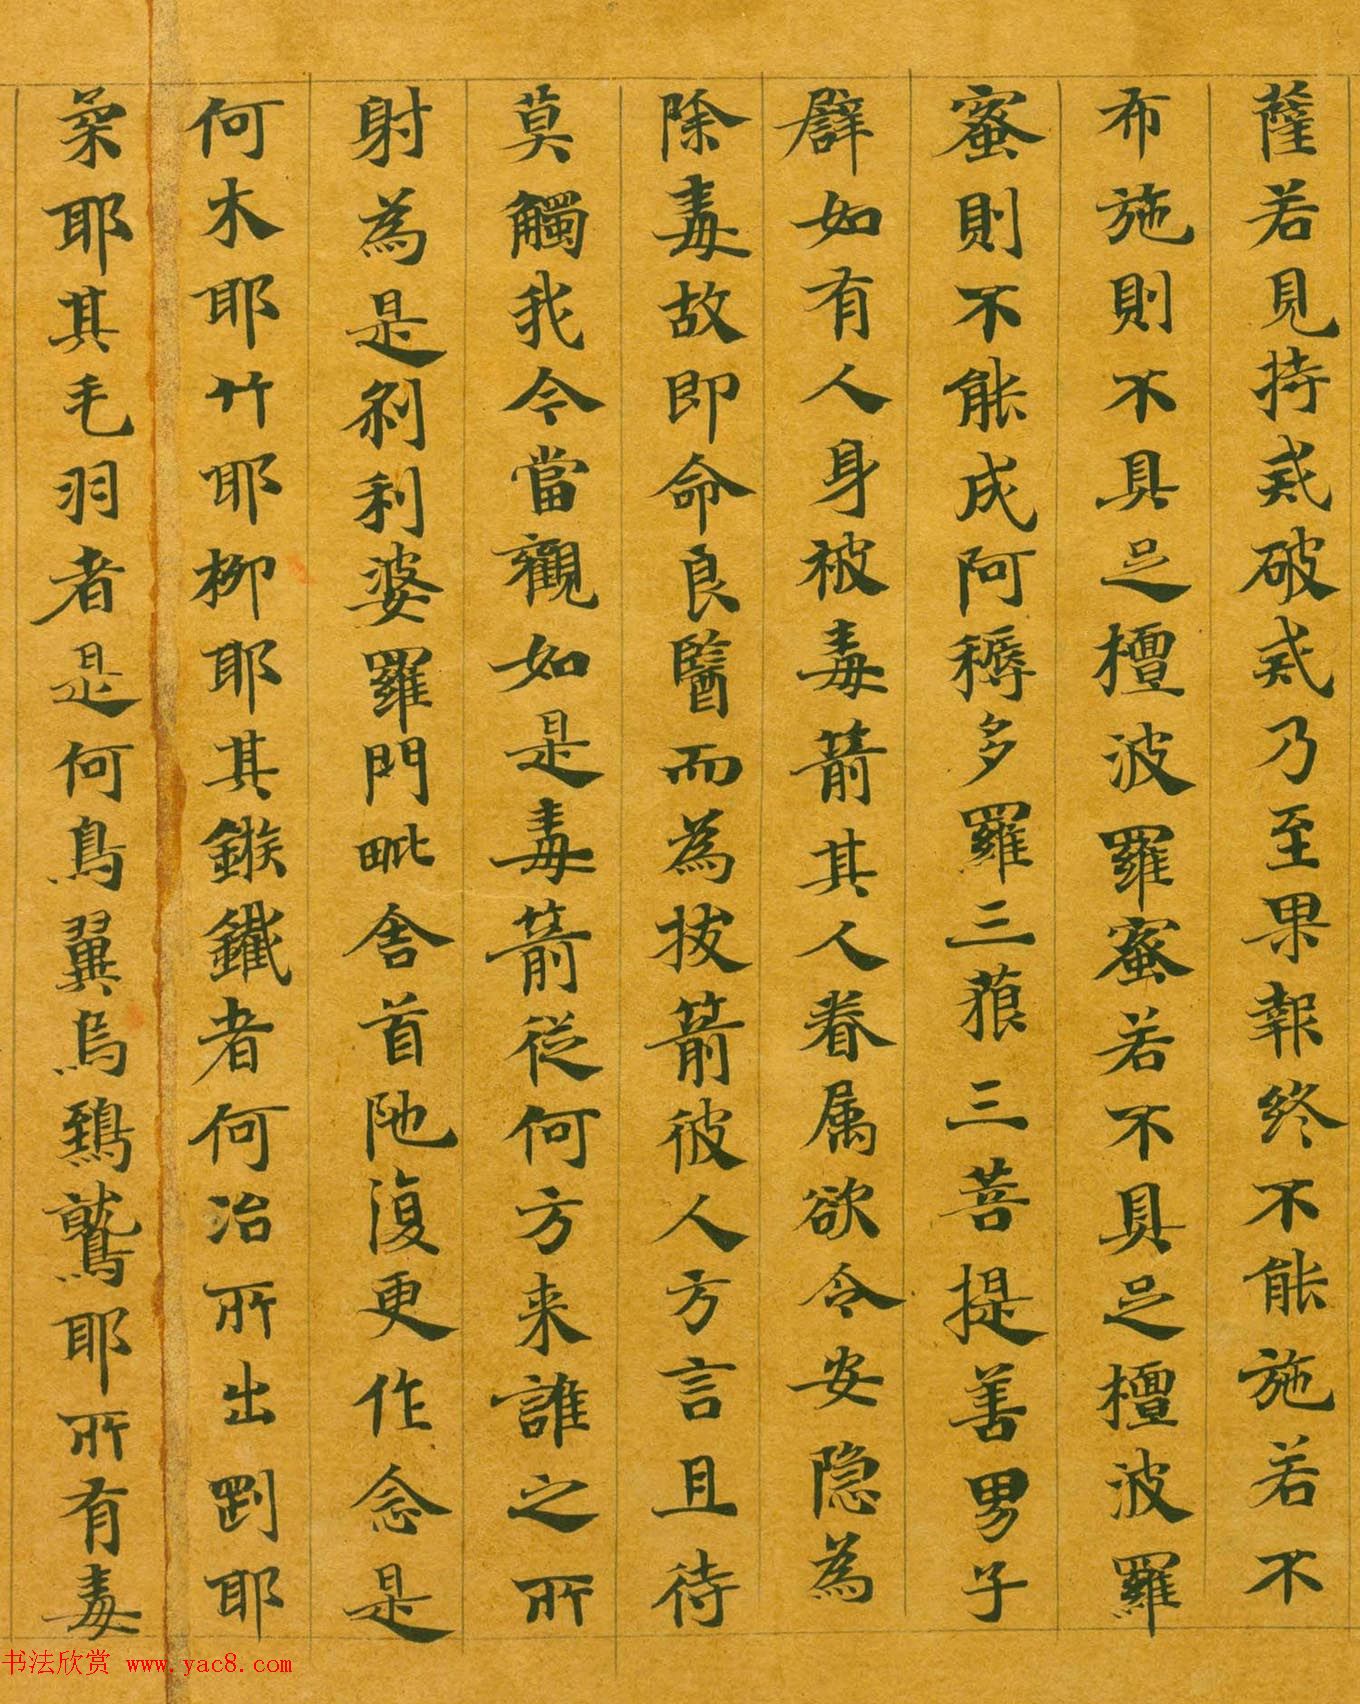 薩若見持戒破戒乃至果報終不能施若不
布施則不具足檀波羅蜜若不具足檀波羅
蜜則不能成阿耨多羅三藐三菩提善男子
辟如有人身被毒箭其人眷属欲令安隐為
除毒故即命良醫而為拔箭彼人方言且待
莫觸我今當觀如是毒箭從何方来誰之所
射為是刹利婆羅門毗舍首陁復更作念是
何木耶竹耶柳耶其鏃鐵者何冶所出剛耶
柔耶其毛羽者是何鳥翼烏鵄鷲耶所有毒
书法欣赏 www.yac8.com